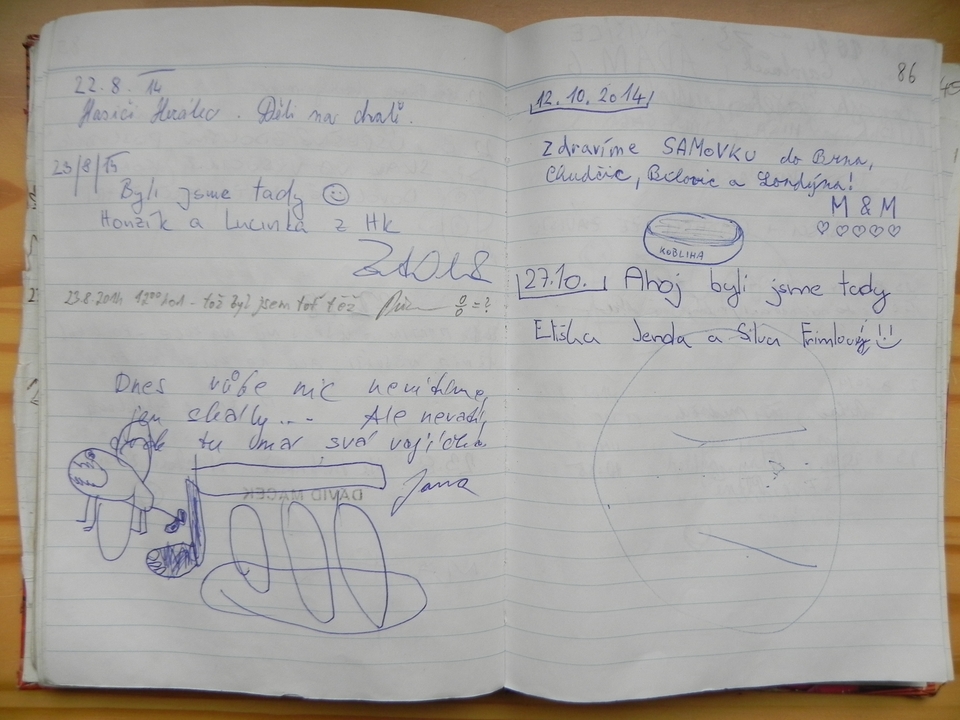 22. 8. 14
Hasiči Hrádec. Děli na chatě.
23/8/14
Byli jsme tady
Honzík a Lucinka z HK
23.8.2014 12:00 - tož byl jsem toť též % = ?
Dnes vůbec nic nevidíme,
jen skály.... Ale nevadí,
tu umar své vajíčka
Jana
DAVID MACEK
86
12. 10. 2014
Zdravíme SAMOVKU do Brna,
Chudčic, Bílovic a Londýna!
M & M
♡♡♡♡♡
KOBLIHA
27.10. Ahoj byli jsme tady
Eliška Jenda a Silva Frimlovi!!